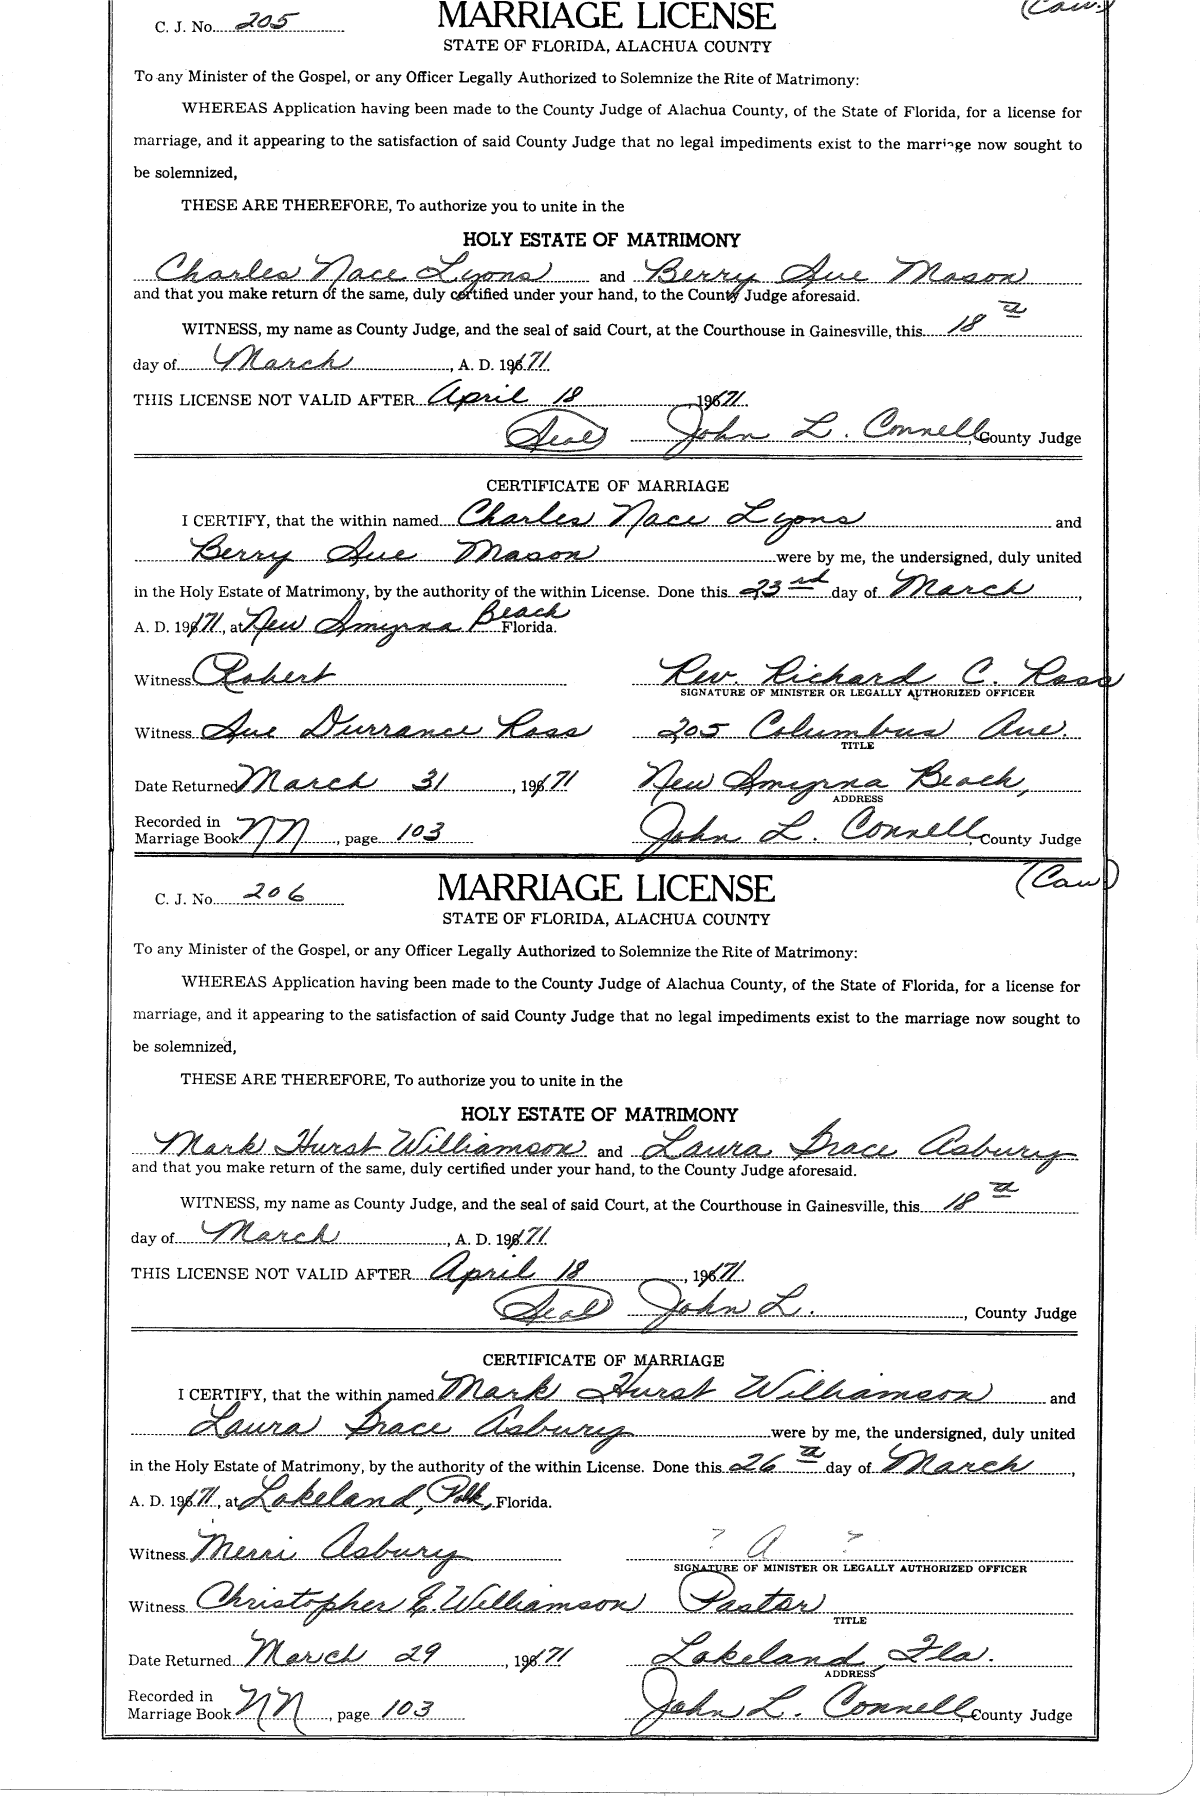 (Cau.)
C. J. No. 205
MARRIAGE LICENSE
STATE OF FLORIDA, ALACHUA COUNTY
To any Minister of the Gospel, or any Officer Legally Authorized to Solemnize the Rite of Matrimony:
WHEREAS Application having been made to the County Judge of Alachua County, of the State of Florida, for a license for
marriage, and it appearing to the satisfaction of said County Judge that no legal impediments exist to the marriage now sought to
be solemnized,
THESE ARE THEREFORE, To authorize you to unite in the
HOLY ESTATE OF MATRIMONY
Charles Nace Lyons and Berry Sue Mason
and that you make return of the same, duly certified under your hand, to the County Judge aforesaid.
WITNESS, my name as County Judge, and the seal of said Court, at the Courthouse in Gainesville, this 18th
day of March, A. D. 1971
THIS LICENSE NOT VALID AFTER April 18, 1971
(Seal) John L. Connell, County Judge
CERTIFICATE OF MARRIAGE
I CERTIFY, that the within named Charles Nace Lyons and
Berry Sue Mason were by me, the undersigned, duly united
in the Holy Estate of Matrimony, by the authority of the within License. Done this 23rd day of March,
A. D. 1971, at New Smyrna Beach Florida.
Witness Robert Rev. Richard C. Ross
SIGNATURE OF MINISTER OR LEGALLY AUTHORIZED OFFICER
Witness Sue Durrance Ross 205 Columbus Ave.
TITLE
Date Returned March 31, 1971 New Smyrna Beach,
ADDRESS
Recorded in
Marriage Book NN, page 103 John L. Connell, County Judge
(Cau)
C. J. No. 206
MARRIAGE LICENSE
STATE OF FLORIDA, ALACHUA COUNTY
To any Minister of the Gospel, or any Officer Legally Authorized to Solemnize the Rite of Matrimony:
WHEREAS Application having been made to the County Judge of Alachua County, of the State of Florida, for a license for
marriage, and it appearing to the satisfaction of said County Judge that no legal impediments exist to the marriage now sought to
be solemnized,
THESE ARE THEREFORE, To authorize you to unite in the
HOLY ESTATE OF MATRIMONY
Mark Hurst Williamson and Laura Grace Asbury
and that you make return of the same, duly certified under your hand, to the County Judge aforesaid.
WITNESS, my name as County Judge, and the seal of said Court, at the Courthouse in Gainesville, this 18th
day of March, A. D. 1971
THIS LICENSE NOT VALID AFTER April 18, 1971
(Seal) John L., County Judge
CERTIFICATE OF MARRIAGE
I CERTIFY, that the within named Mark Hurst Williamson and
Laura Grace Asbury were by me, the undersigned, duly united
in the Holy Estate of Matrimony, by the authority of the within License. Done this 26th day of March,
A. D. 1971, at Lakeland, Polk, Florida.
Witness Merri Asbury ? A ?
SIGNATURE OF MINISTER OR LEGALLY AUTHORIZED OFFICER
Witness Christopher E. Williamson Pastor
TITLE
Date Returned March 29, 1971 Lakeland, Fla.
ADDRESS
Recorded in
Marriage Book NN, page 103 John L. Connell, County Judge